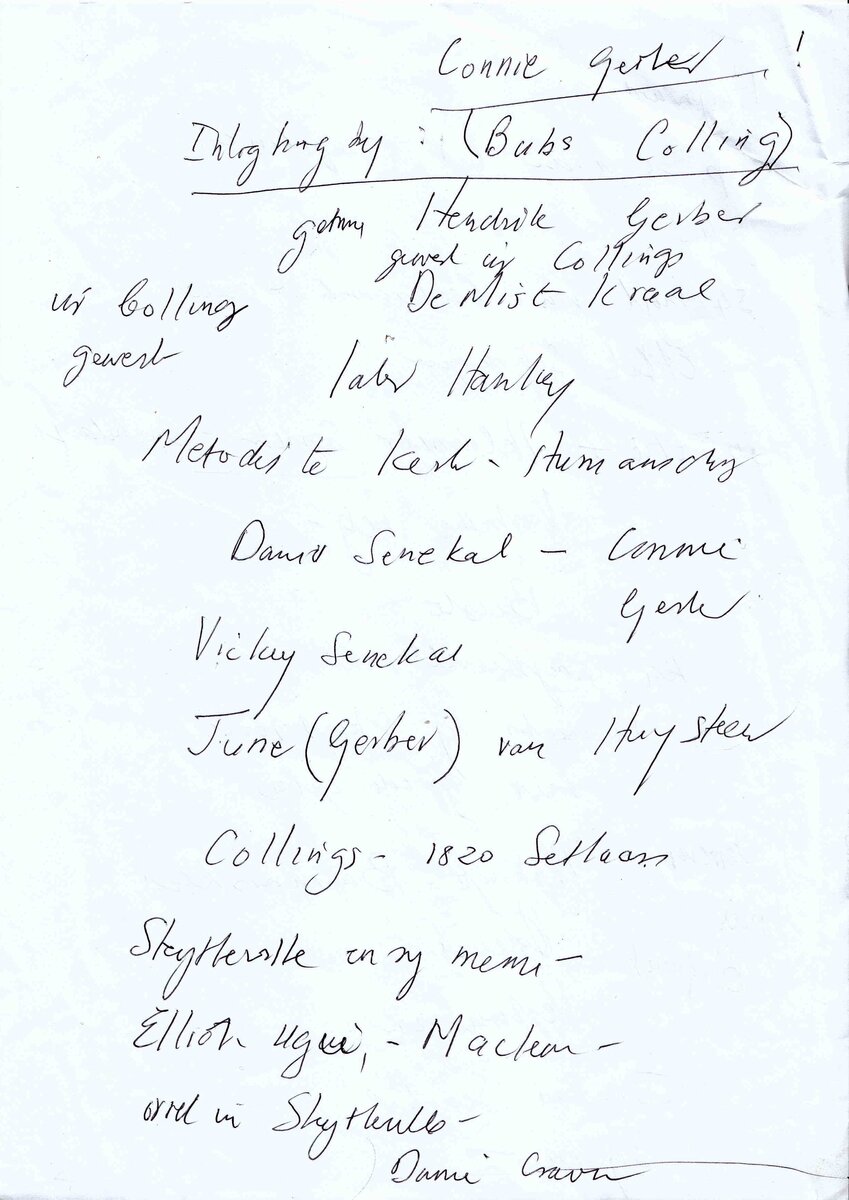 Connie Gerber !
Inligting by : (Bubs Colling)
Hendrik Gerber
gewees Collings
De Mist Kraal
vir Colling
gewerk
later Hankey
Metodiste Kerk - Humansdorp
Danie Senekal - Connie
Gerber
Vicky Senekal
June (Gerber) van Huysteen
Collings - 1820 Setlaars
Skytterville en sy mense -
Elliot - Maclean -
orrel in Skytterville -
Danie Craven